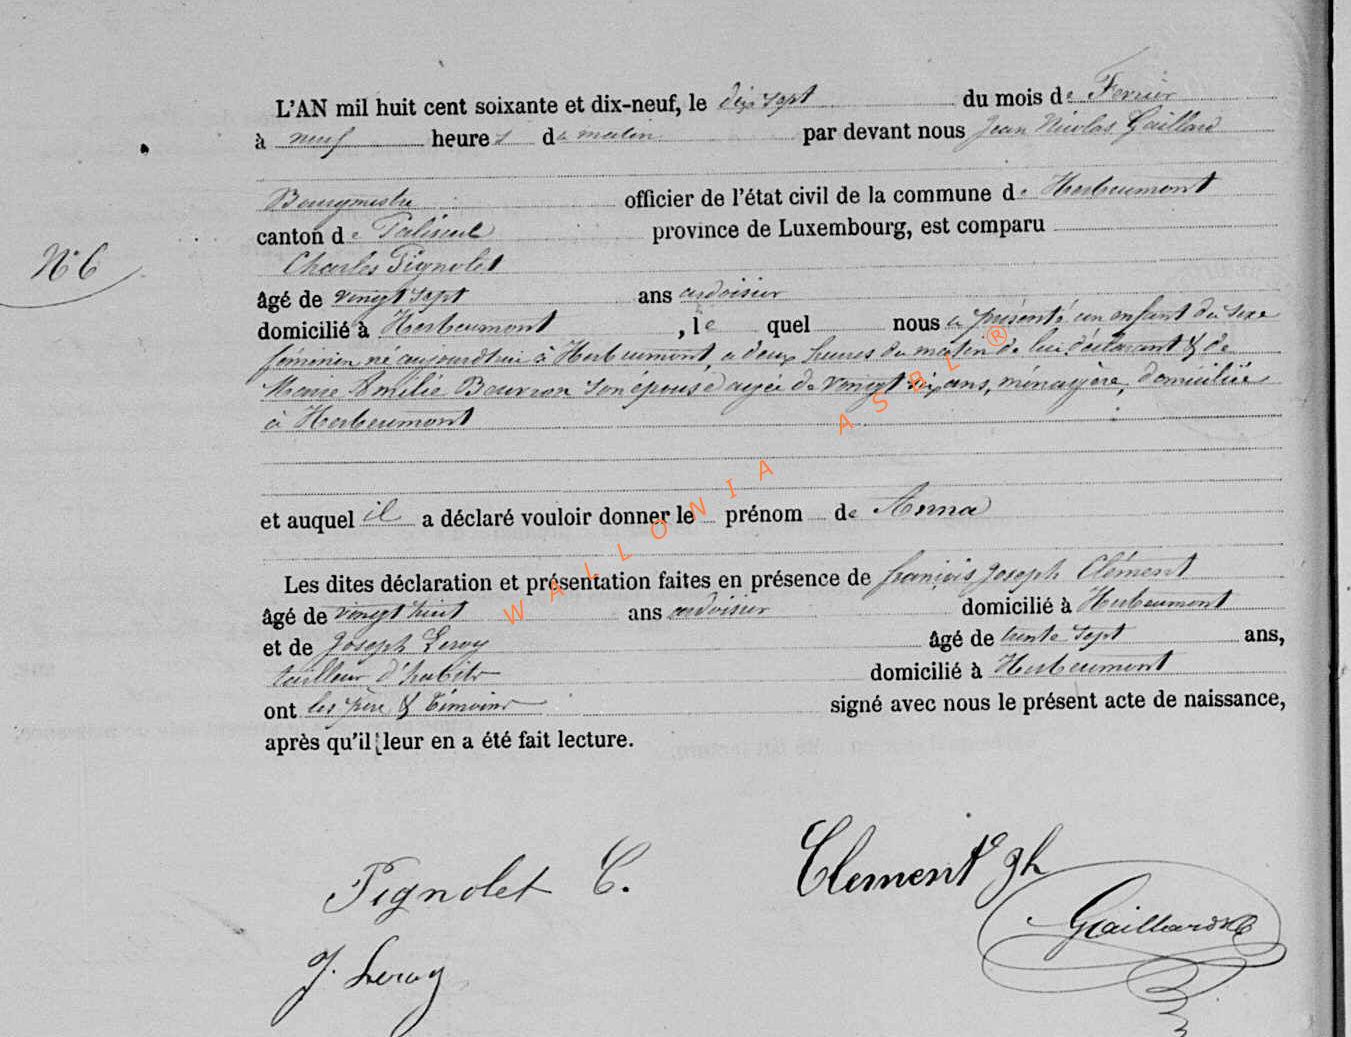 L'AN mil huit cent soixante et dix-neuf, le dix sept du mois de Fevrier
à neuf heures du matin par devant nous Jean Nicolas Gaillard
Bourgmestre officier de l'état civil de la commune de Herbeumont
canton de Paliseul province de Luxembourg, est comparu
N° 6
Charles Pignolet
âgé de vingt sept ans ardoisier
domicilié à Herbeumont, le quel nous a présenté un enfant du sexe
féminin né aujourdhui à Herbeumont, a deux heures du matin de lui déclarant & de
Marie Amélie Bouvron son épouse agée de vingt six ans, ménagère, domiciliée
à Herbeumont
et auquel il a déclaré vouloir donner le prénom de Anna
Les dites déclaration et présentation faites en présence de françois Joseph Clément
âgé de vingt huit ans ardoisier domicilié à Herbeumont
et de Joseph Leroy âgé de trente sept ans,
tailleur d'habits domicilié à Herbeumont
ont les père & témoins signé avec nous le présent acte de naissance,
après qu'il leur en a été fait lecture.
Pignolet C. Clement
J. Leroy Gaillard
WALLONIA ASBL ®